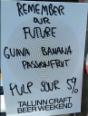 REMEMBER
OUR
FUTURE
GUAVA BANANA
PASSIONFRUIT
PULP SOUR 5%
TALLINN CRAFT
BEER WEEKEND